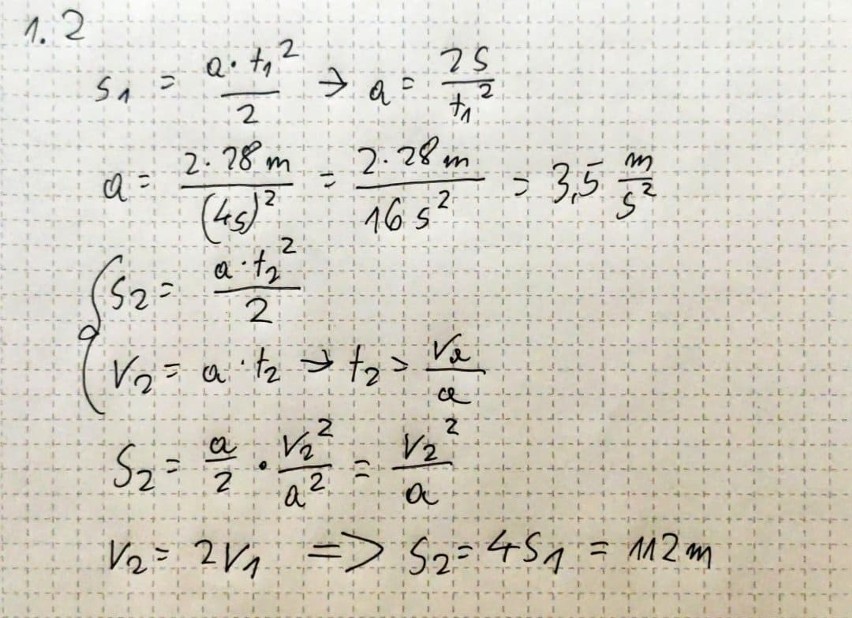 1.2
s₁ = a·t₁²/2 → a = 2s/t₁²
a = 2·28m/(4s)² = 2·28m/16s² = 3,5 m/s²
{ s₂ = a·t₂²/2
v₂ = a·t₂ → t₂ = v₂/a
s₂ = a/2 · v₂²/a² = v₂²/a
v₂ = 2v₁ => s₂ = 4s₁ = 112m